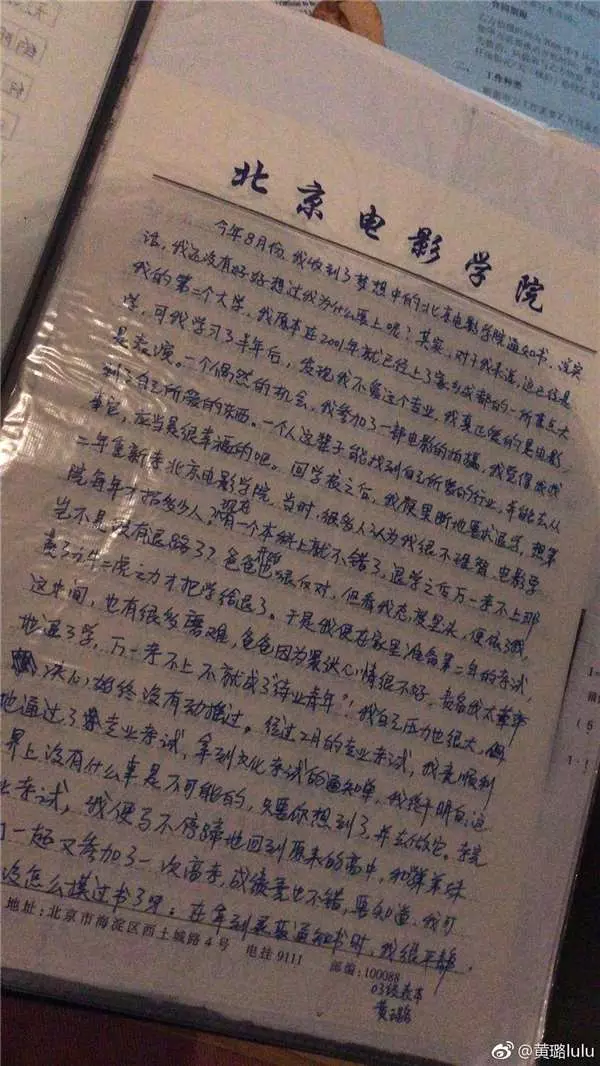 北京电影学院
今年8月份，我收到了梦想中的北京电影学院通知书，说实
话，我还没有好好想过我为什么要上呢？其实，对于我来说，这已经是
我的第二个大学，我原本在2001年就已经上了家乡成都的一所重点大
学，可我学习了半年后，发现我不爱这个专业，我真正爱的是电影，
是表演。一个偶然的机会，我参加了一部电影的拍摄，我觉得我找
到了自己所爱的东西。一个人这辈子能找到自己所爱的行业，并能去从
事它，应当是很幸福的吧。回学校之后，我便果断地要求退学，想第
二年重新考北京电影学院，当时，很多人认为我很不理智，电影学
院每年才招多少人？现在有一个本科上就不错了，退学之后万一考不上那
岂不是没有退路了？爸爸也很反对，但看我态度坚决，便依了我，
费了九牛二虎之力才把学给退了。于是我便在家里准备第二年的考试，
这中间，也有很多磨难，爸爸因为
心情很不好，责备我太草率
地退了学，万一考不上不就成了"待业青年"！我自己压力也很大，但
决心始终没有动摇过。经过2月的专业考试，我竟顺利
地通过了专业考试，拿到文化考试的通知单，我终于明白：这
界上没有什么事是不可能的，只要你想到了，并去做它。考完
业考试，我便马不停蹄地回到原来的高中，和弟弟妹
们一起又参加了一次高考，成绩竟也不错，要知道，我可
没怎么摸过书了呀。在拿到录取通知书时，我很平静，
地址：北京市海淀区西土城路4号 电挂9111 邮编：100088
03级表本
黄璐
二、工作种类
@黄璐lulu